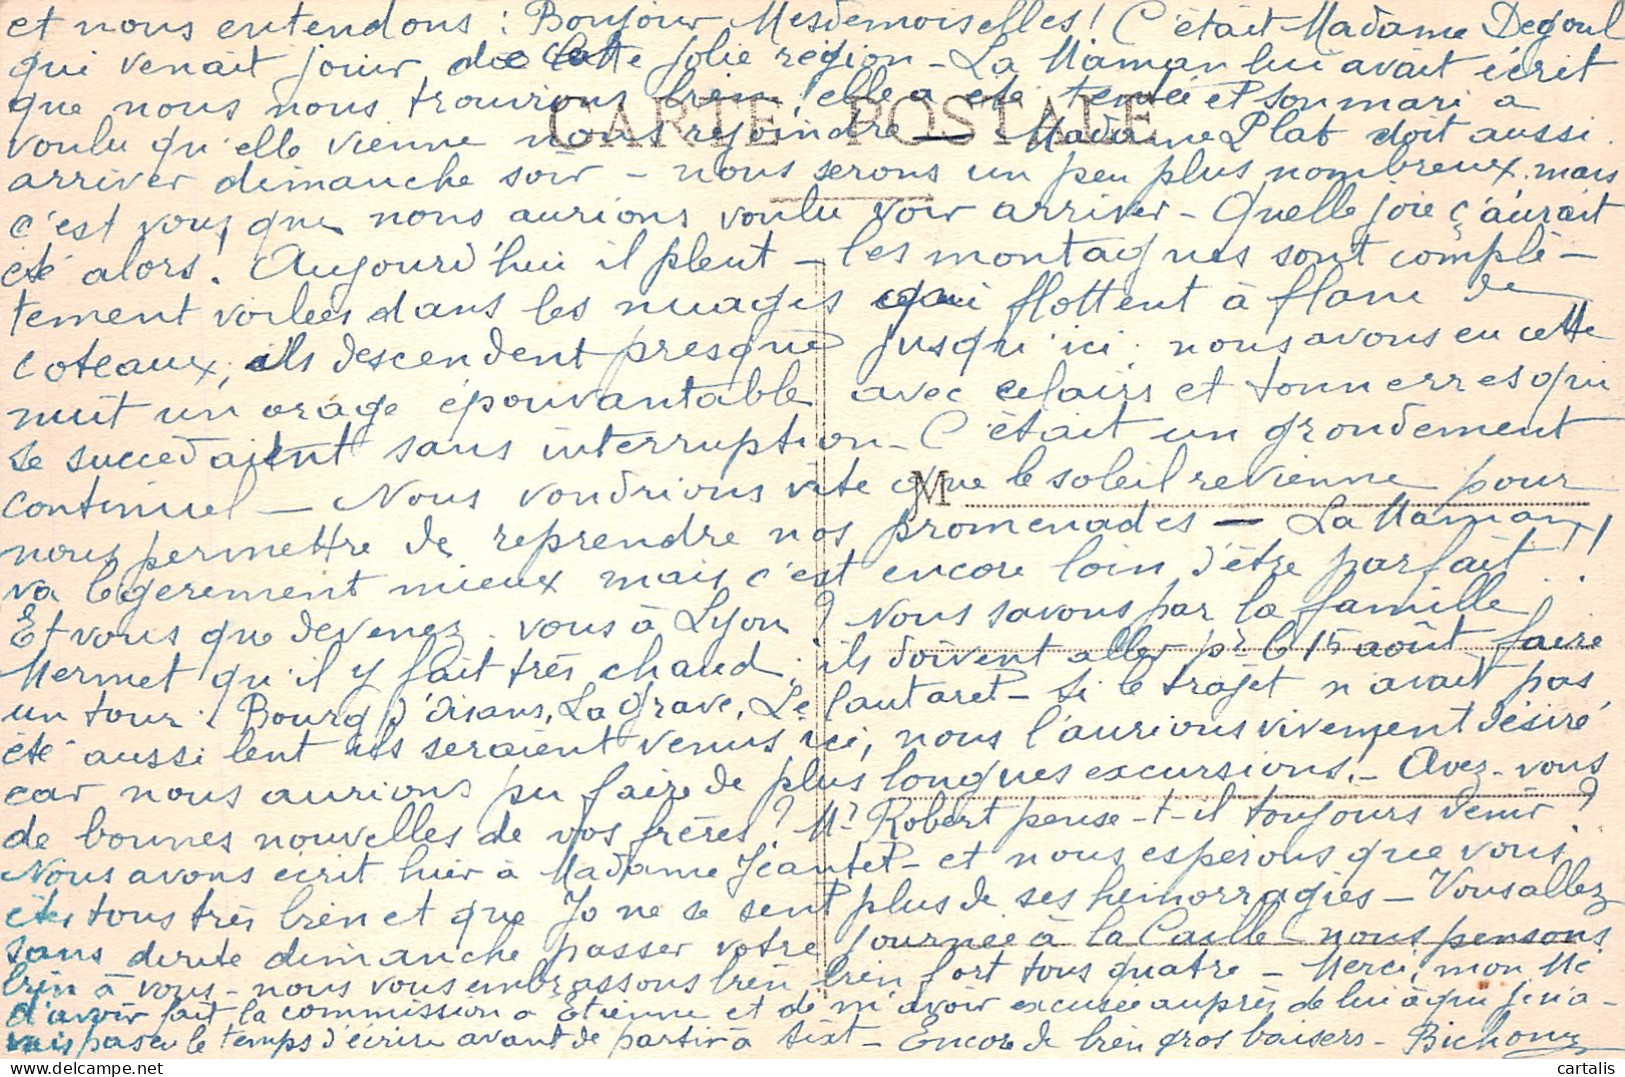 et nous entendons : Bonjour Mesdemoiselles ! C'était Madame Degoul
qui venait jouir de cette jolie région - La Maman lui avait écrit
que nous nous trouvions bien, elle a été tentée et son mari a
CARTE POSTALE
voulu qu'elle vienne nous rejoindre — Madame Plat doit aussi
arriver dimanche soir - nous serons un peu plus nombreux. mais
c'est vous que nous aurions voulu voir arriver - Quelle joie ç'aurait
été alors. Aujourd'hui il pleut - les montagnes sont complè-
tement voilées dans les nuages qui flottent à flanc de
coteaux, ils descendent presque jusqu'ici. nous avons eu cette
nuit un orage épouvantable avec eclairs et tonnerres qui
se succedaient sans interruption - C'était un grondement
continuel - Nous voudrions vite que le soleil revienne pour
M
nous permettre de reprendre nos promenades - La Maman
va legerement mieux mais c'est encore loin d'être parfait !
Et vous que devenez-vous à Lyon ? Nous savons par la famille
Mermet qu'il y fait très chaud, ils doivent aller pr le 15 août faire
un tour : Bourg d'Oisans, La Grave, Le Lautaret - Si le trajet n'avait pas
été aussi lent ils seraient venus ici, nous l'aurions vivement désiré
car nous aurions pu faire de plus longues excursions ! - Avez-vous
de bonnes nouvelles de vos frères ? Mr Robert pense-t-il toujours venir ?
Nous avons écrit hier à Madame Jeantet - et nous esperons que vous
êtes tous très bien et que Jo ne se sent plus de ses hémorragies - Vous allez
sans doute dimanche passer votre journée à la Caille ! nous pensons
bien à vous - nous vous embrassons bien, bien fort tous quatre - Merci ! mon Mé
d'avoir fait la commission à Etienne et de m'avoir excusée auprès de lui à qui je n'a-
vais pas eu le temps d'écrire avant de partir à Sixt - Encore de bien gros baisers - Bichon
cartalis.com